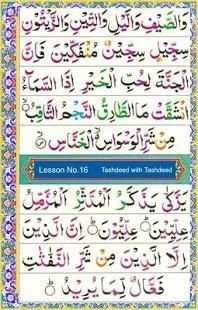 وَالصَّيْفِ وَالَّيْلِ وَالتِّيْنِ وَالزَّيْتُوْنِ
سِجِّيْلٍ سِجِّيْنٌ مُنْفَكِّيْنَ فَاِنَّ
الْجَنَّةَ لِحُبِّ الْخَيْرِ اِذَا السَّمَآءُ
انْشَقَّتْ مَا الطَّارِقُ النَّجْمُ الثَّاقِبُ
مِنْ شَرِّ الْوَسْوَاسِ الْخَنَّاسِ
Lesson No.16 Tashdeed with Tashdeed
يَزَّكّٰى يَذَّكَّرُ الْمُدَّثِّرُ الْمُزَّمِّلُ
عِلِّيِّيْنَ عِلِّيُّوْنَ اِنَّ الَّذِيْنَ
اِلَّا الَّذِيْنَ مِنْ شَرِّ النَّفّٰثٰتِ
فَعَّالٌ لِّمَا يُرِيْدُ